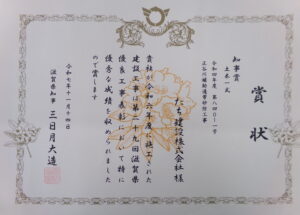 賞状
知事賞
土木一式
令和四年度 第八四〇一号
正谷川補助通常砂防工事
たち建設株式会社様
貴社が令和六年度に施工された
建設工事は第二十九回滋賀県
優良工事表彰において特に
優秀な成績を収められました
ので賞します
令和七年十一月十四日
滋賀県知事 三日月大造